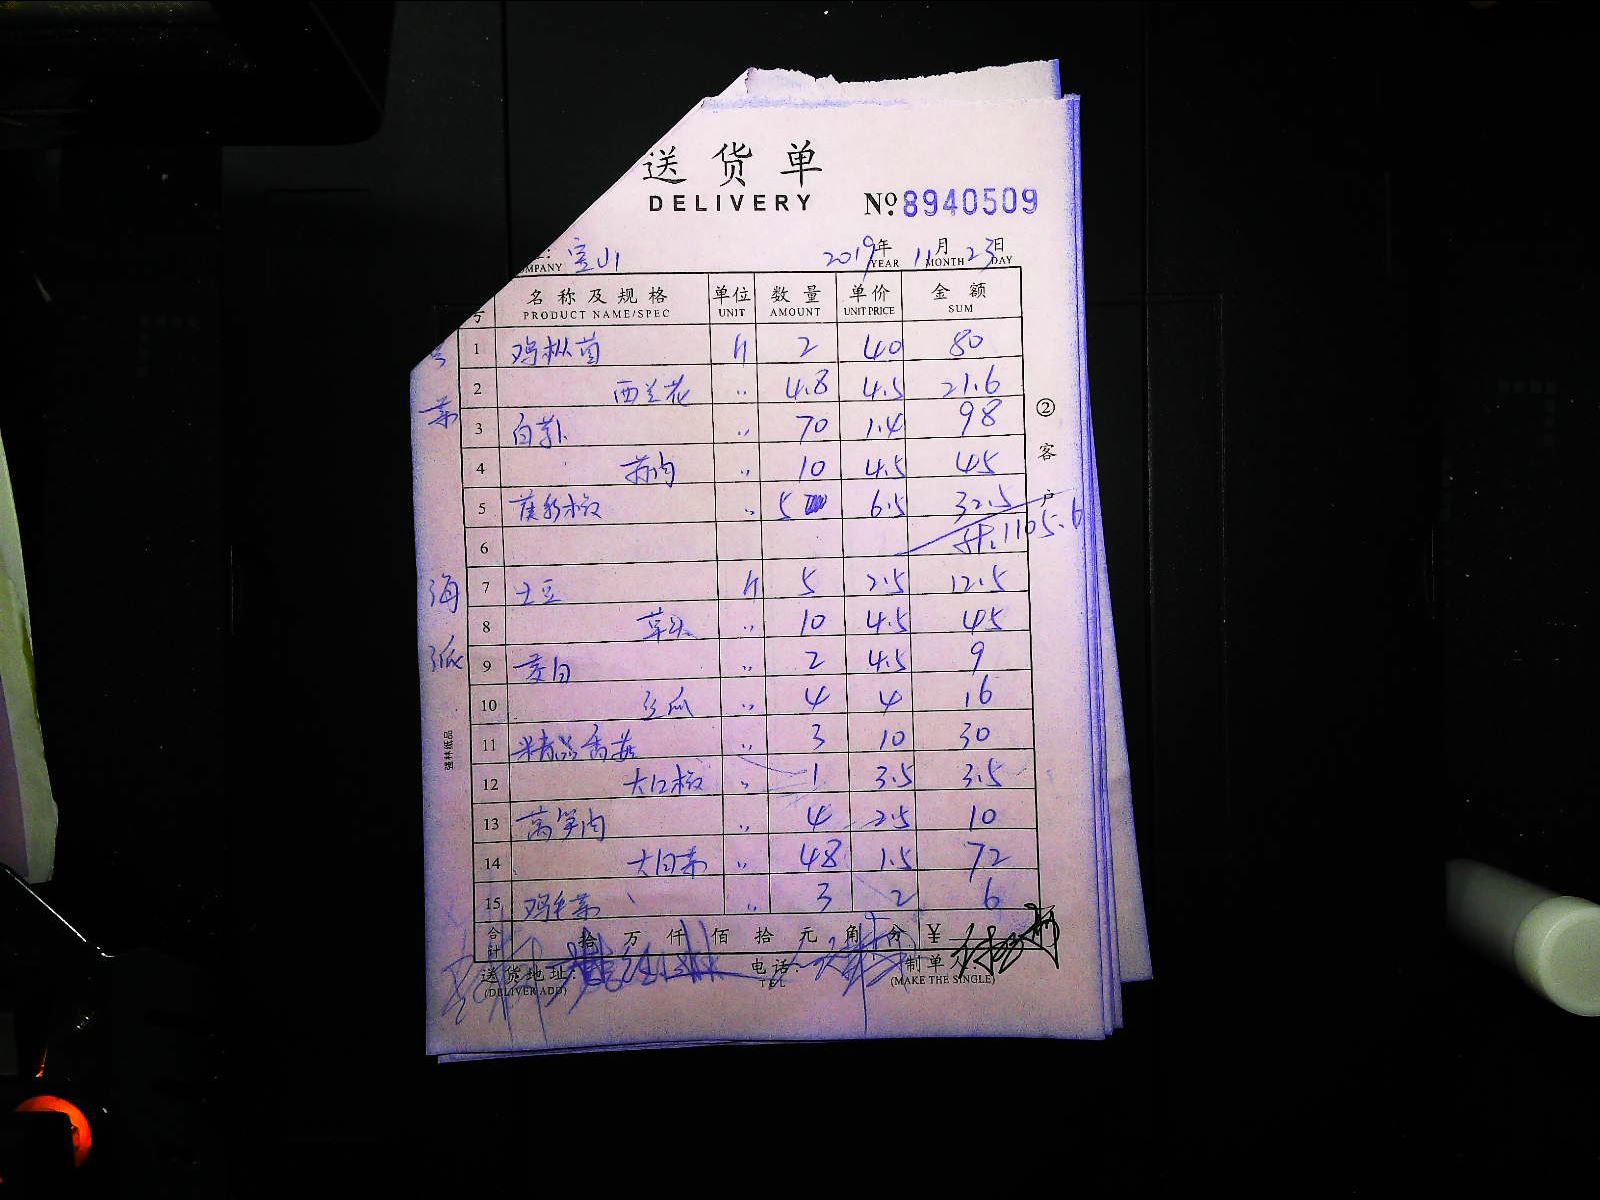 送货单
DELIVERY № 8940509
COMPANY 宝山 2019年 YEAR 11月 MONTH 23日 DAY
号 名称及规格 PRODUCT NAME/SPEC 单位 UNIT 数量 AMOUNT 单价 UNIT PRICE 金额 SUM
1 鸡枞菌 斤 2 40 80
2 西兰花 〃 4.8 4.5 21.6
3 白萝卜 〃 70 1.4 98
4 〃 10 4.5 45
5 〃 5 6.5 32.5
6 计:1105.6
7 土豆 斤 5 2.5 12.5
8 草头 〃 10 4.5 45
9 茭白 〃 2 4.5 9
10 丝瓜 〃 4 4 16
11 精品香菇 〃 3 10 30
12 大口椒 〃 1 3.5 3.5
13 莴笋肉 〃 4 2.5 10
14 大白菜 〃 48 1.5 72
15 鸡毛菜 〃 3 2 6
合计 拾 万 仟 佰 拾 元 角 分 ¥
送货地址: 电话: 制单
(DELIVER ADD) TEL (MAKE THE SINGLE)
②客户
菜
海
强林纸品